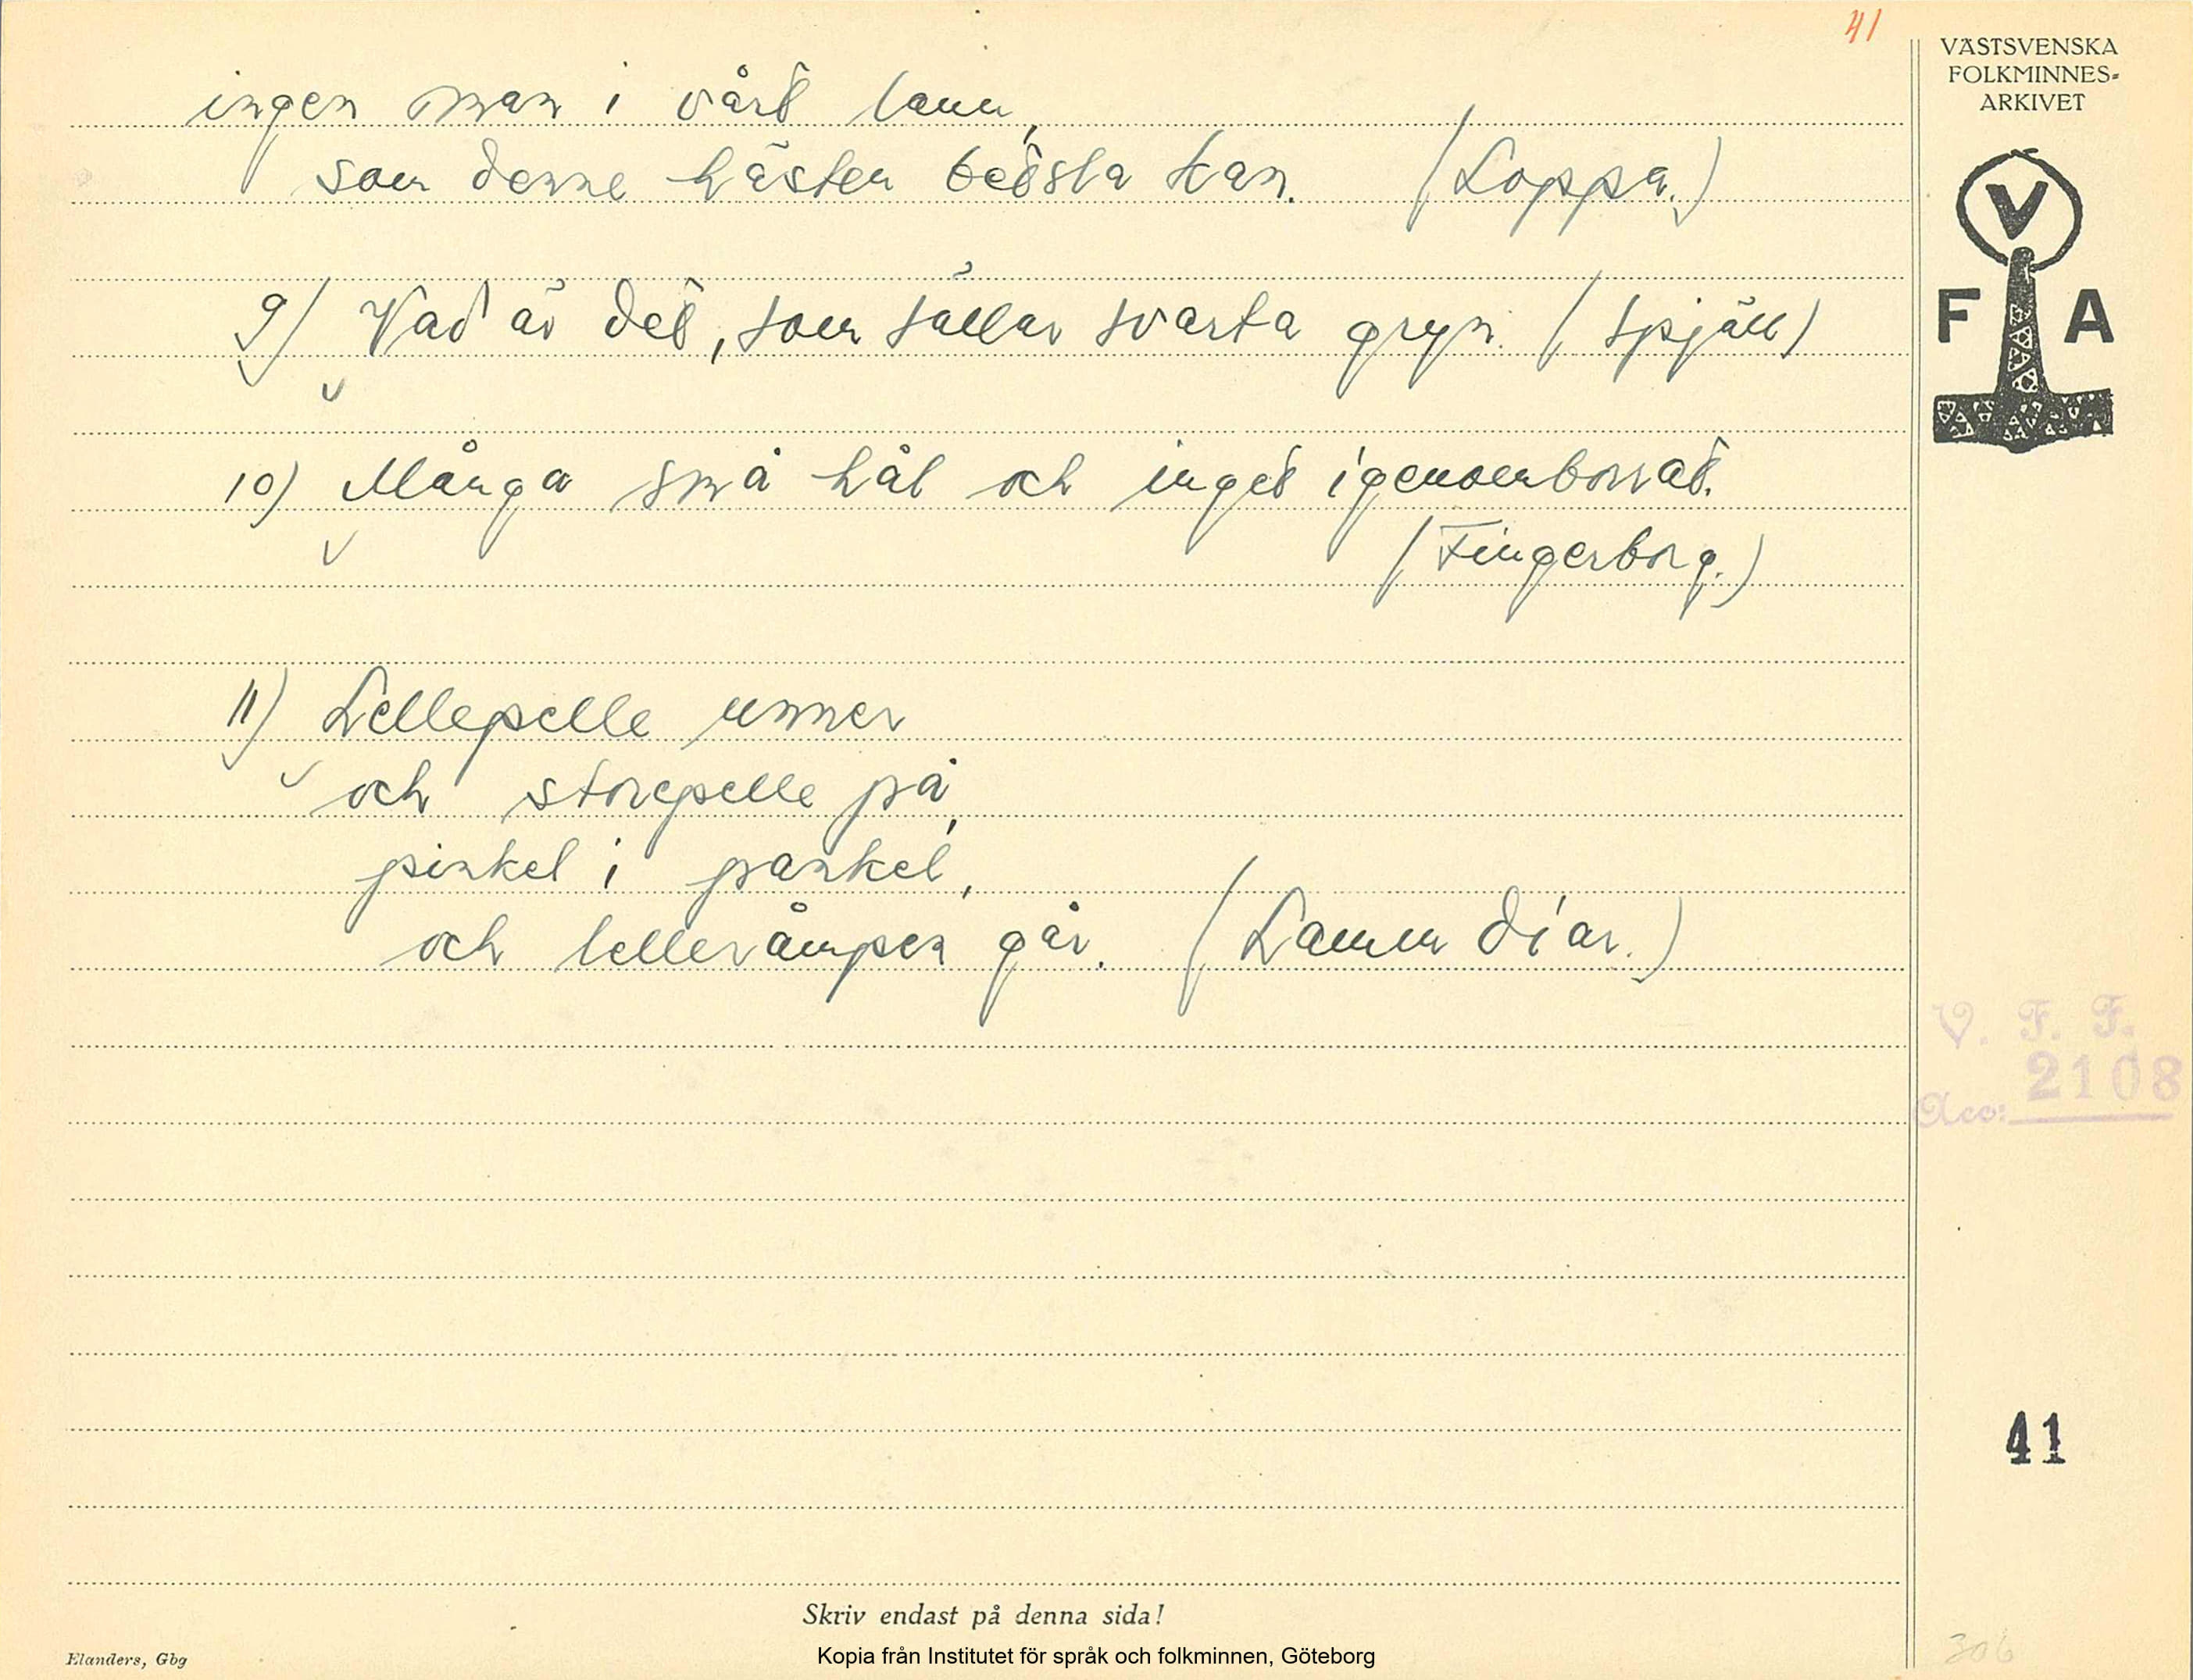 41
ingen man i vårt lann,
som denne hästen betsla kan. (Loppa.)
9) Vad är det, som sållar svarta gryn. (Spjäll)
10) Många små hål och inget igenomborrat.
(Fingerborg.)
11) Lellepelle unner
och storepelle på,
pinkel i pankel,
och lelleråmpen går. (Lamm díar.)
VÄSTSVENSKA
FOLKMINNES-
ARKIVET
V
F A
V. F. F.
Acc: 2108
41
306
Skriv endast på denna sida!
Elanders, Gbg
Kopia från Institutet för språk och folkminnen, Göteborg